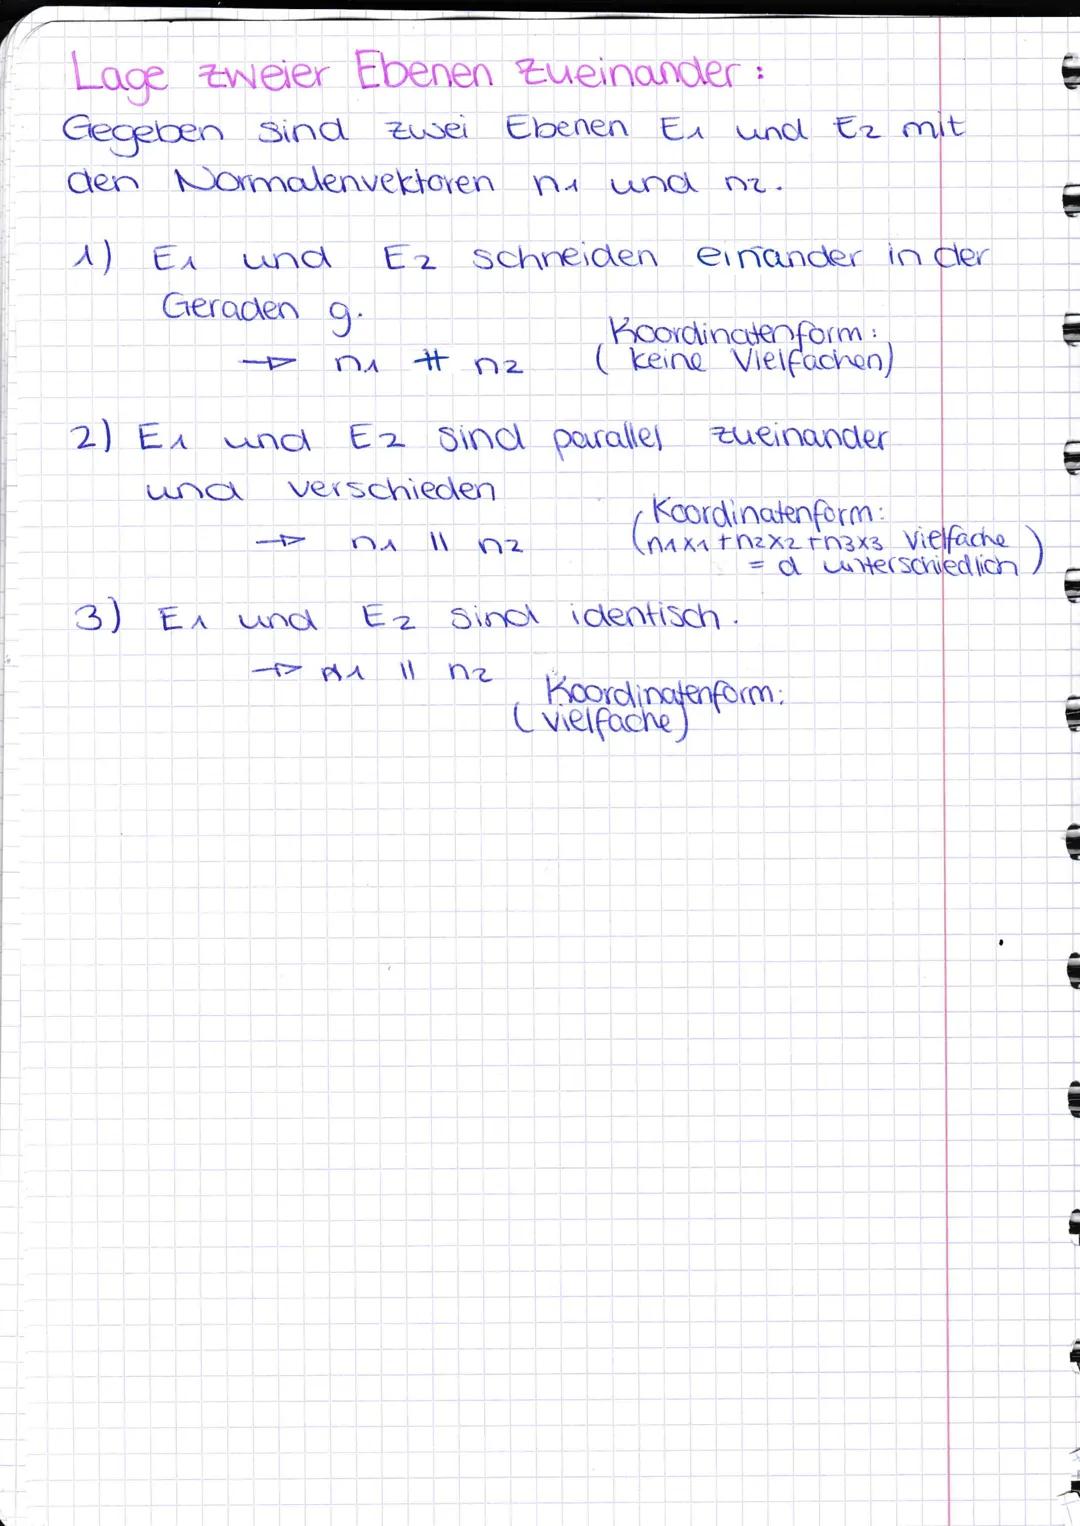 Lage zweier Ebenen zueinander:
Gegeben sind zwei Ebenen E1 und E2 mit
den Normalenvektoren n1 und n2.
1) E1 und E2 schneiden einander in der
Geraden g.
→ n1 ∦ n2
Koordinatenform:
(keine Vielfachen)
2) E1 und E2 sind parallel zueinander
und verschieden
→ n1 || n2
Koordinatenform:
(n1x1+n2x2+n3x3 Vielfache
= d unterschiedlich)
3) E1 und E2 sind identisch.
→ n1 || n2
Koordinatenform:
(vielfache)